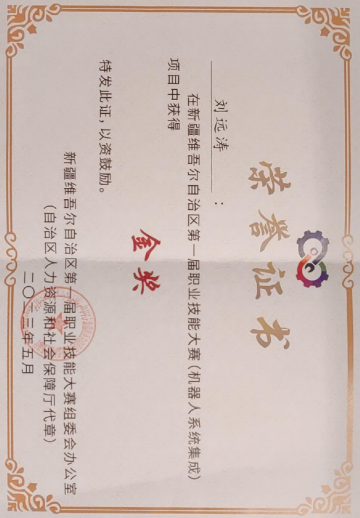 荣誉证书
刘远涛：
在新疆维吾尔自治区第一届职业技能大赛(机器人系统集成)
项目中获得
金奖
特发此证,以资鼓励。
新疆维吾尔自治区第一届职业技能大赛组委会办公室
(自治区人力资源和社会保障厅代章)
二〇二三年五月